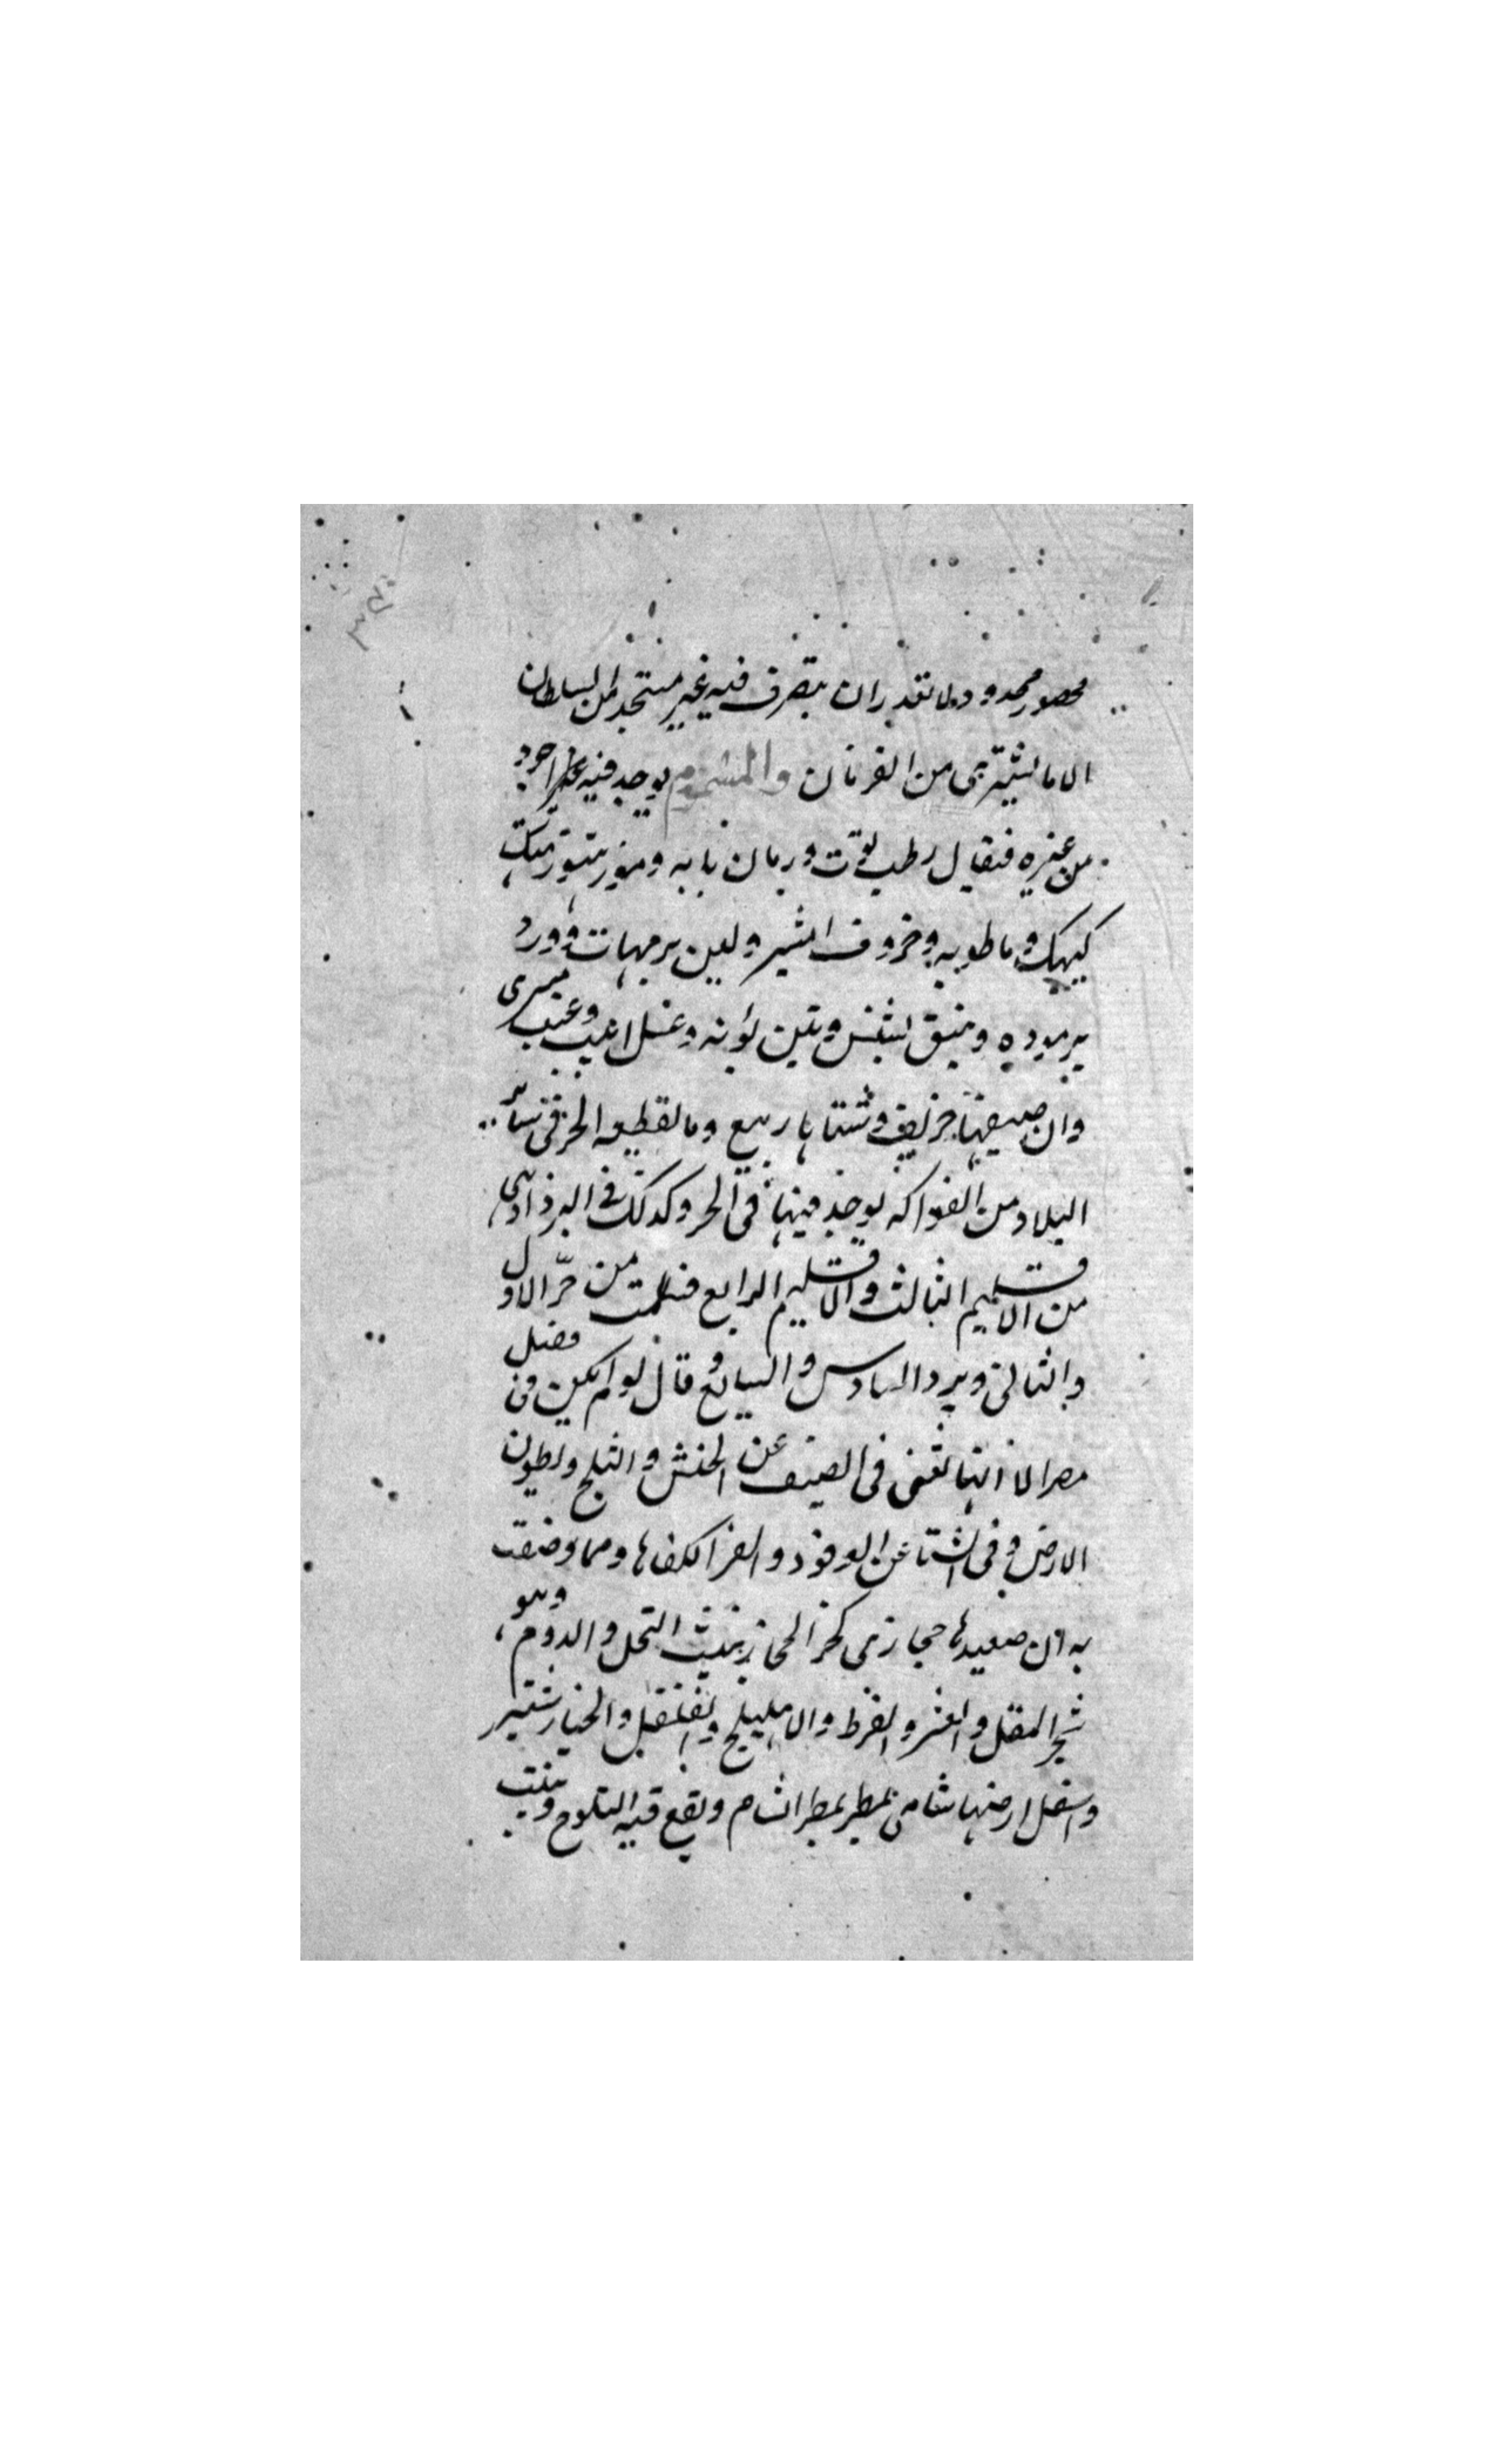 محصور محدود ولا تقدر ان يتصرف فيه غير مستحد من السلطان
الا ما يشترى من الفرمان والمشموم يوجد فيه
من غيره فيقال رطب توت ورمان بابه وموز هتور وسمك
كيهك وماطوبه وخروف امشير ولبن برمهات وورد
برموده ونبق بشنس وتين بؤنه وعسل ابيب وعنب مسرى
وان صيفها خريف وشتاها ربيع وما يقطعه الحر فى سائر
البلاد من الفواكه يوجد فيها فى الحر وكذلك فى البرد اذ هى
من الاقليم الثالث والاقليم الرابع فسلمت من حرّ الاول
والثانى وبرد السادس والسابع وقال لو لم يكن من فضل
مصر الا انها تغنى فى الصيف عن الخيش والثلج وبطون
الارض وفى الشتا عن الوقود والفرا لكفاها ومما وصفت
به ان صعيدها حجازى كحر الحجاز ينبت النخل والدوم وهو
شجر المقل والعشر والقرظ والاهليلج والفلفل والخيار شنبر
واسفل ارضها شامى يمطر بمطر الشام ويقع فيه الثلوج وينبت